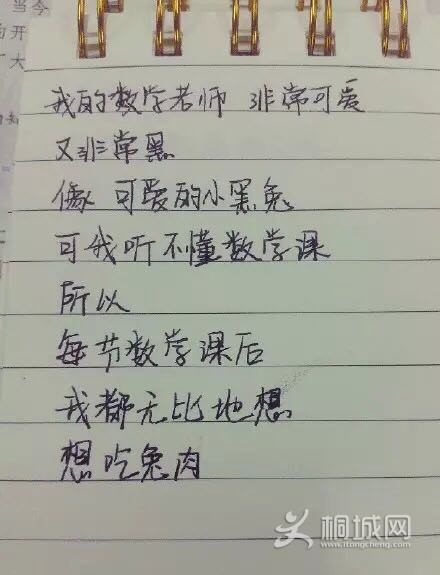 当今
大
我的数学老师 非常可爱
又非常黑
像 可爱的小黑兔
可我听不懂数学课
所以
每节数学课后
我都无比地想
想吃兔肉
桐城网
www.itongcheng.com